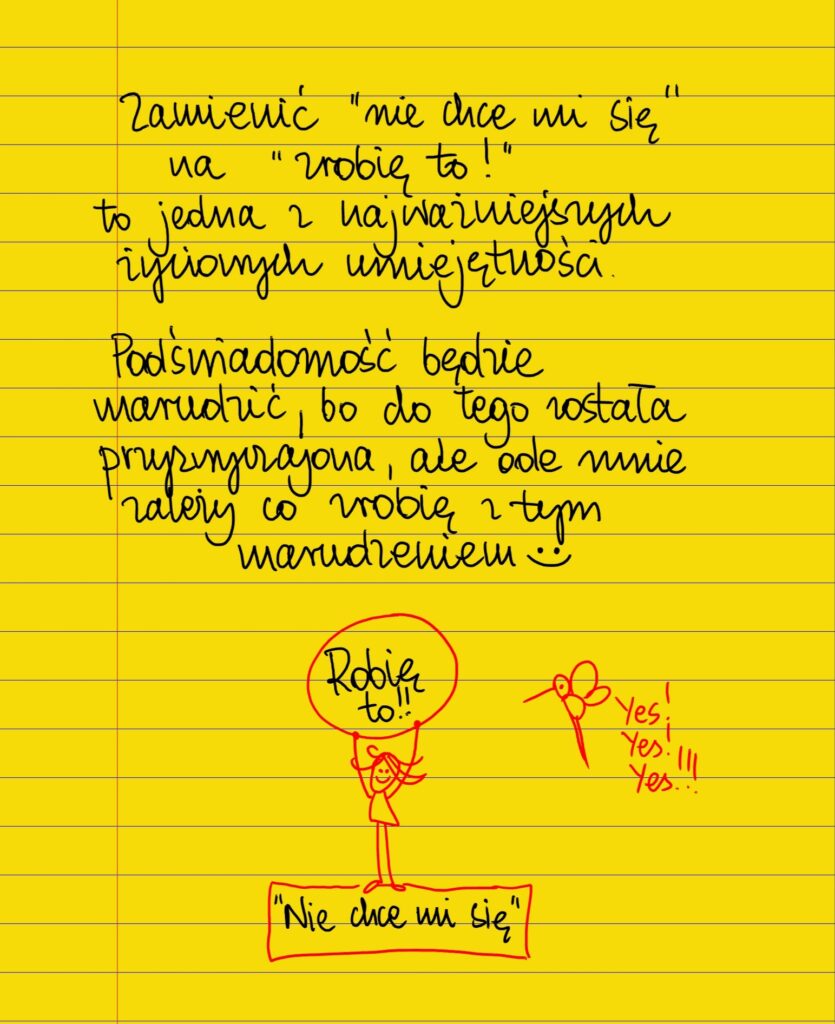 Zamienić "nie chce mi się"
na "zrobię to!"
to jedna z najważniejszych
życiowych umiejętności.
Podświadomość będzie
marudzić, bo do tego została
przyzwyczajona, ale ode mnie
zależy co zrobię z tym
marudzeniem :)
Robię
to!!
Yes!
Yes!
Yes!!!
"Nie chce mi się"